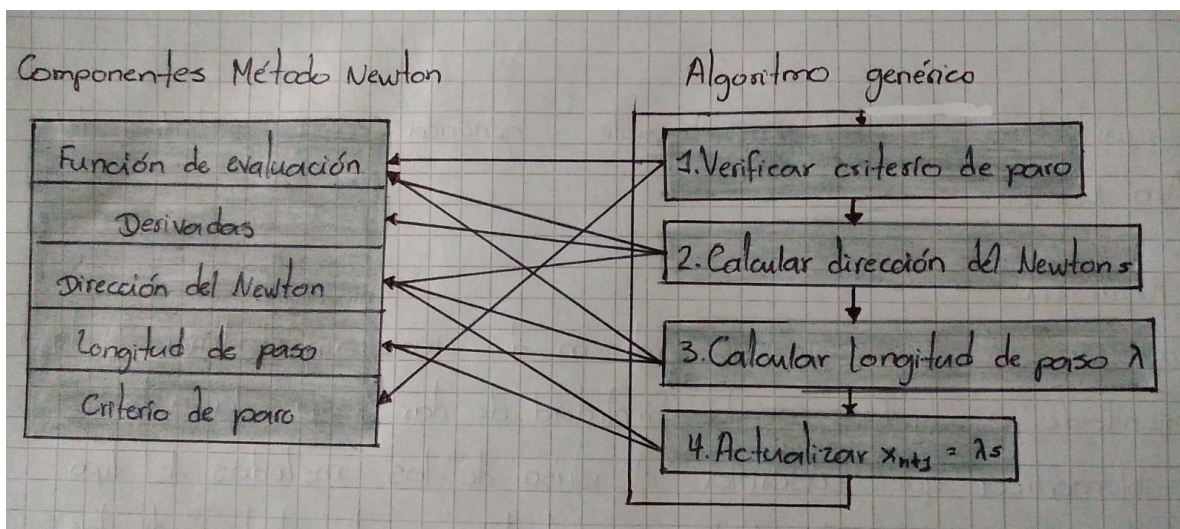 Componentes Método Newton
Función de evaluación
Derivadas
Dirección del Newton
Longitud de paso
Criterio de paro
Algoritmo genérico
1. Verificar criterio de paro
2. Calcular dirección del Newton s
3. Calcular longitud de paso λ
4. Actualizar xₙ₊₁ = λs